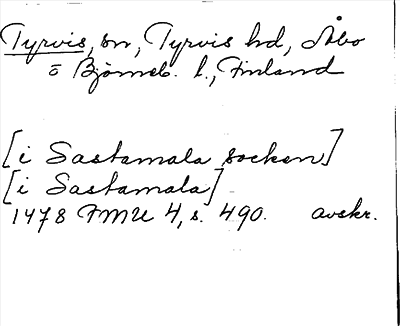 Tyrvis, sn, Tyrvis hd, Åbo
o Björneb. l., Finland
[i Sastamala socken]
[i Sastamala]
1478 FMU 4, s. 490. avskr.